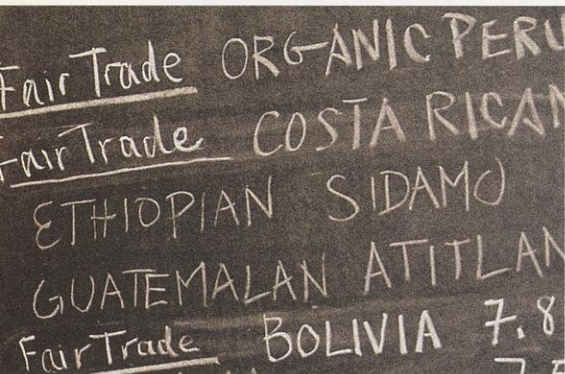 Fair Trade ORGANIC PERU
Fair Trade COSTA RICAN
ETHIOPIAN SIDAMO
GUATEMALAN ATITLAN
Fair Trade BOLIVIA 7.8